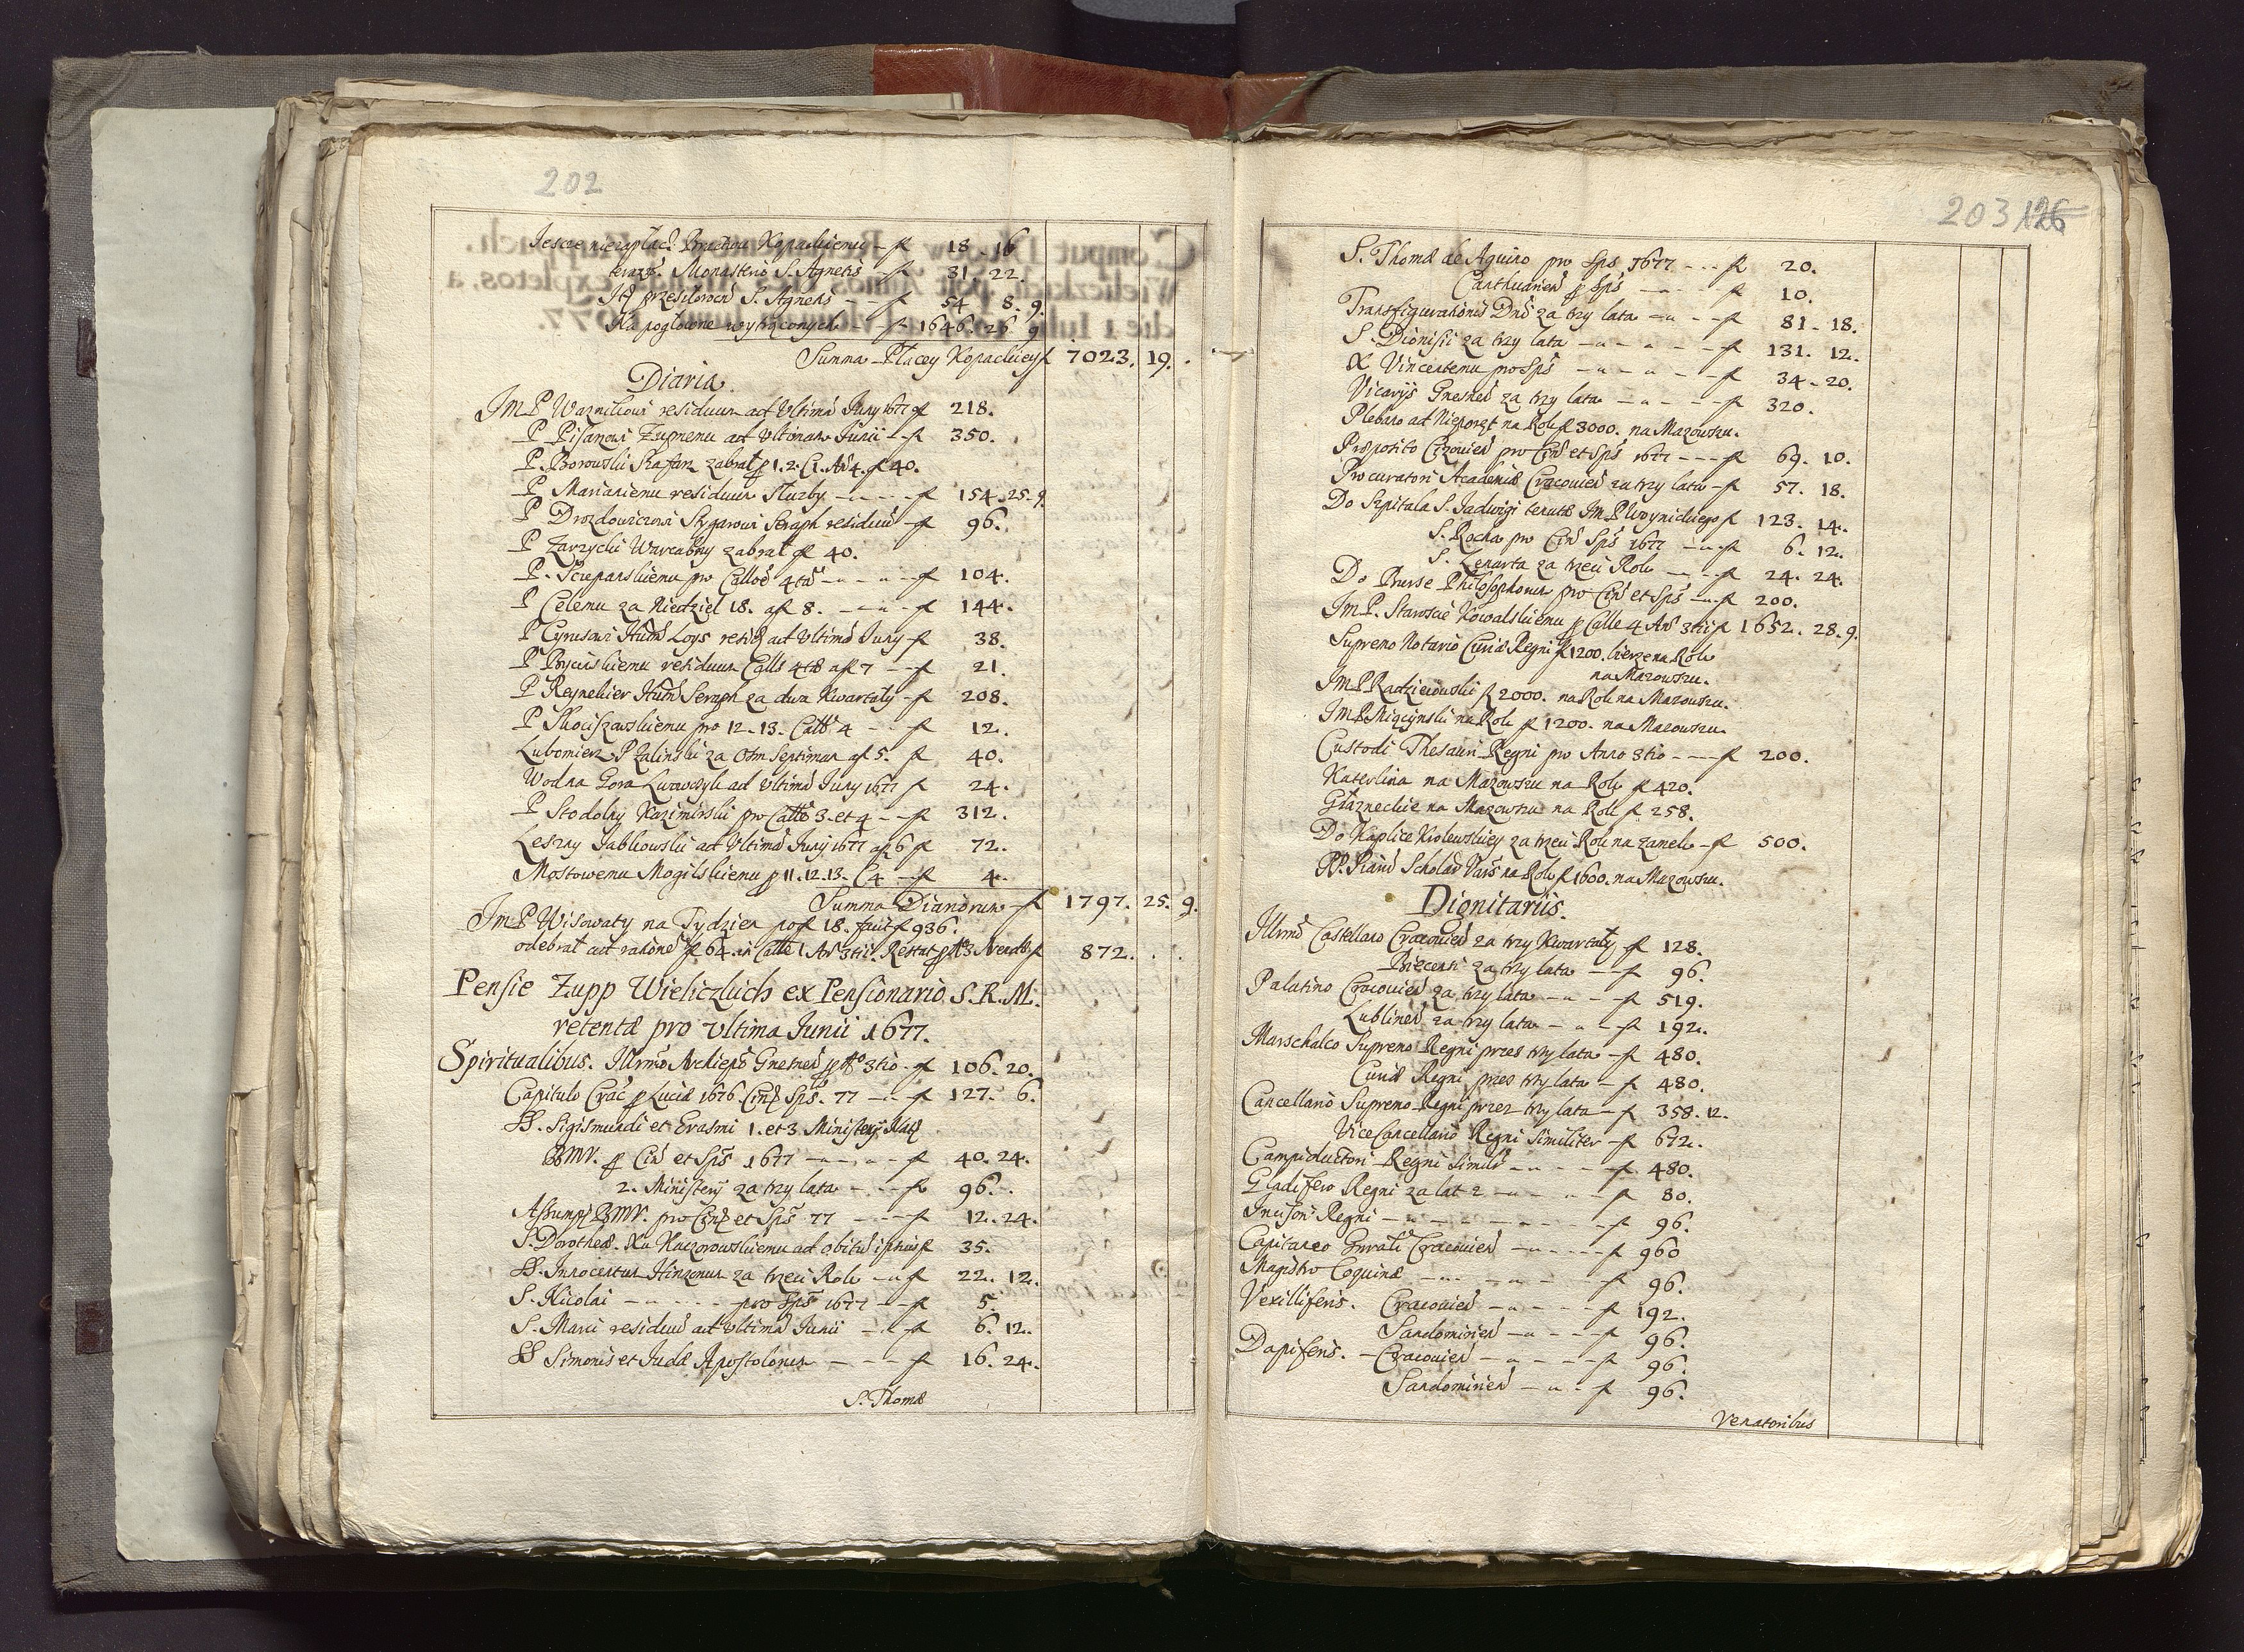 202
Jescze niezapłac. Brachou Kopackiemu – fl 18 . 16
teraz. Monasterio S. Agnetis – fl 31 . 22.
It przesilowan S. Agnetis – – fl 54 8. 9.
Na pogłowne wytrąconych – – fl 1646. 26. 9
Summa Płacey Kopackiey fl 7023. 19.
Diaria.
Jm P Waznikowi residuum ad Ultimā Juny 1677 fl 218.
P Pisarzowi Zupnemu ad Ultimam Junii – fl 350.
P. Borowski Szafarz zabrał p 1. 2. C. An 4. fl 40.
P Marianiemu residuum służby – – – – fl 154. 25. 9.
P Drozdowiczowi Stygarowi Seraph residuū – fl 96.
P Zarzycki Warcabny zabrał fl 40.
P. Sczepanskiemu pro Callō 4tā – – – fl 104.
P Celemu za Niedziel 18. a fl 8. – – – fl 144.
P Cyrusowi Hutm Loys resid ad Ultimā Juny – fl 38.
P Brycinskiemu residuum Calls 4tæ a fl 7 – – fl 21.
P Reynekier Hutm Seraph za dwa Kwartały – fl 208.
P Skociszowskiemu pro 12. 13. Callō 4 – – fl 12.
Lubomierz P Zalinski za Osm Septiman a fl 5. fl 40.
Wodna Gora Lwowczyk ad Ultimā Juny 1677 fl 24.
P Stodolny Kazimirski pro Callō 3. et 4 – – fl 312.
Leszny Jabkowski ad Ultimā Juny 1677 a fl 6 fl 72.
Mostowemu Mogilskiemu p 11. 12. 13. C 4 – fl 4.
Summa Diariorum – fl 1797. 25. 9.
Jm P Wisowaty na Tydzien po fl 18. facit fl 936.
odebrał ad rationē fl 64. in Callō 1 An 3tii. Restat fl 872.
Pensie Zupp Wieliczkich ex Pensionario S. R. M.
retentæ pro ultima Junii 1677.
Spiritualibus. Illrmo Archiepo Gnesneñ p Aº 3tio – fl 106. 20.
Capitulo Crac p Lucia 1676. Cinꝫ Sps. 77 – – fl 127. 6.
SS. Sigismundi et Erasmi 1. et 3. Ministerÿ Natꝫ
BMV. p Ciñ et Sps 1677 – – – fl 40. 24.
2. Ministerÿ za trzy lata – – – fl 96.
Assumpꝫ BMV. pro Cinꝫ et Sps 77 – – – fl 12. 24.
S. Dorotheæ. Xu Kaczorowskiemu ad obitū ipsius fl 35.
SS. Innocentum Hinzonum za trzeci Rok – fl 22. 12.
S. Nicolai – – – – pro Sps 1677 – – fl 5.
S. Marci residuū ad Ultimā Junii – – fl 6. 12.
SS Simonis et Judæ Apostolorum – – – fl 16. 24.
S. Thomæ
203 126
S. Thomæ de Aquino pro Sps 1677 – – – fl 20.
Carthusiañ p Sps – – – fl 10.
Transfigurationis Dnī za trzy lata – – – fl 81 – 18.
S. Dionisii za trzy lata – – – – – fl 131. 12.
X Vincentemu pro Sps – – – – fl 34 – 20.
Vicarÿs Gnesneñ za trzy lata – – – – fl 320.
Plebano ad Nieporęt na Rok fl 3000. na Mazowszu.
Præposito Cracovień pro Ciñ et Sps 1677 – – – fl 69. 10.
Procuratori Academiæ Cracovień za trzy lata – fl 57. 18.
Do Szpitala S. Jadwigi tenutæ Jm P Woynickiego fl 123. 14.
S. Rocha pro Ciñ Sps 1677 – – fl 6. 12.
S. Lenarta za trzeci Rok – – – fl 24. 24.
Do Bursse Philosophorum pro Ciñ et Sps – – fl 200.
Jm P. Staroscie Kowalskiemu p Calle 4 An 3tii fl 1652. 28. 9.
Supremo Notario Curiæ Regni fl 1200. bierze na Rok
na Mazowszu.
Jm P Radzieiowski fl 2000. na Rok na Mazowszu.
Jm P Miączynski na Rok fl 1200. na Mazowszu.
Custodi Thesauri Regni pro Anno 3tio – – – fl 200.
Katerlina na Mazowszu na Rok fl 420.
Głazneckie na Mazowszu na Rok fl 258.
Do Kaplice Krolewskiey za trzeci Rok na zamek – fl 500.
PP. Piarū Scholar Vars na Rok fl 1600. na Mazowszu.
Dignitariis.
Illrmo Castellano Cracovień za trzy Kwartały fl 128.
Biecensi za trzy lata – – fl 96.
Palatino Cracovień za trzy lata – – – fl 519.
Lubliñeñ za trzy lata – – – fl 192.
Marschalco Supremo Regni przez trzy lata – fl 480.
Curiæ Regni przez trzy lata – fl 480.
Cancellario Supremo Regni przez trzy lata – fl 358. 12.
ViceCancellario Regni Similiter – fl 672.
Campiductori Regni Similr – – – – fl 480.
Gladifero Regni za lat 2 – – – – fl 80.
Incisori Regni – – – – – – – fl 96.
Capitaneo Gnrali Cracovień – – – – fl 960
Magistro Coquinæ – – – – – – fl 96.
Vexilliferis. Cracovień – – – – fl 192.
Sandomirień – – – – fl 96.
Dapiferis. – Cracovień – – – – – fl 96.
Sandomirień – – – fl 96.
Venatoribus